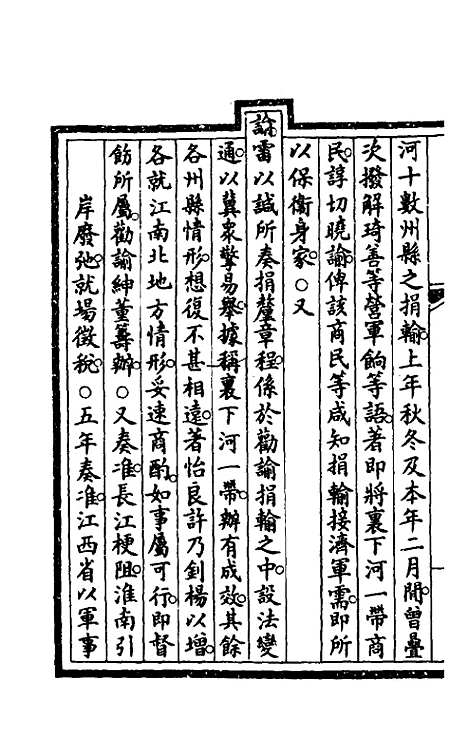 河十數州縣之捐輸上年秋冬及本年二月閒曾疊
次撥解琦善等營軍餉等語著即將裏下河一帶商
民諄切曉諭俾該商民等咸知捐輸接濟軍需即所
以保衞身家○又
諭雷以諴所奏捐釐章程係於勸諭捐輸之中設法變
通以冀衆擎易舉據稱裏下河一帶辦有成效其餘
各州縣情形想復不甚相遠著怡良許乃釗楊以增
各就江南北地方情形妥速商酌如事屬可行即督
飭所屬勸諭紳董籌辦○又奏准長江梗阻淮南引
岸廢弛就場徵稅○五年奏准江西省以軍事